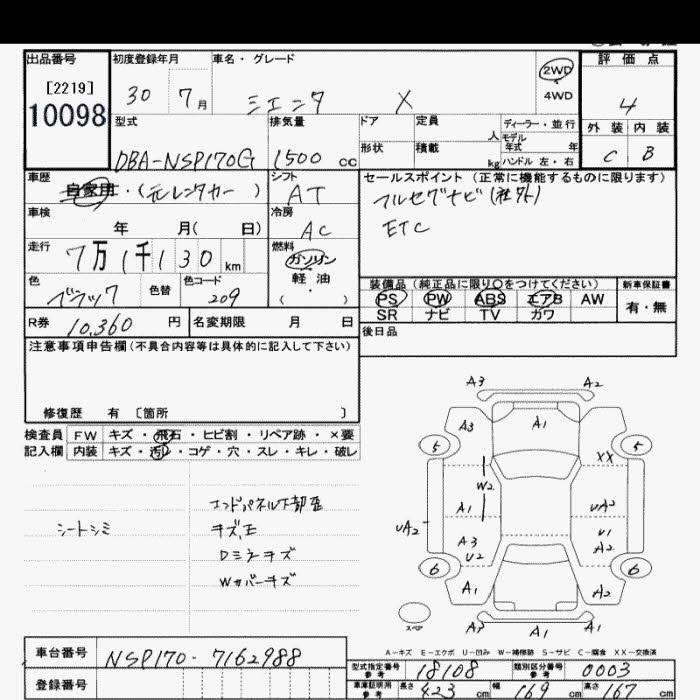 出品番号
[2219]
10098
初度登録年月
30 7月
車名・グレード
シエンタ X
2WD
4WD
評価点
4
外装 内装
C B
型式
DBA-NSP170G
排気量
1500 cc
ドア
定員 人
形状
積載 kg
ディーラー・並行
モデル
年式 年
ハンドル 左・右
車歴
自家用・(元レンタカー)
シフト
AT
セールスポイント(正常に機能するものに限ります)
フルセグナビ(社外)
ETC
車検
年 月( 日)
冷房
AC
走行
7万1千130km
燃料
ガソリン
軽油
・( )
色
ブラック
色替
色コード
209
装備品(純正品に限り○をつけてください)
PS PW ABS エアB AW
SR ナビ TV カワ
新車保証書
有・無
R券 10,360円
名変期限 月 日
後日品
注意事項申告欄(不具合内容等は具体的に記入して下さい)
修復歴 有〔箇所 〕
検査員
記入欄
FW キズ・飛石・ヒビ割・リペア跡・×要
内装 キズ・汚れ・コゲ・穴・スレ・キレ・破レ
シートシミ
エンドパネル下部歪
キズ、エ
Dミラーキズ
Wカバーキズ
A3 A2
A3 A1
5 5
XX
W2
A1 UA2
UA2
U1
A3 A2
U2
6 6
A1 A2
スペア
A1 A1 A1
A-キズ E-エクボ U-凹み W-補修跡 S-サビ C-腐食 XX-交換済
車台番号 NSP170-7162988
登録番号
型式指定番号
参考
18108
類別区分番号
参考
0003
車庫証明用
参考
長さ 423cm 幅 169cm 高さ 167cm